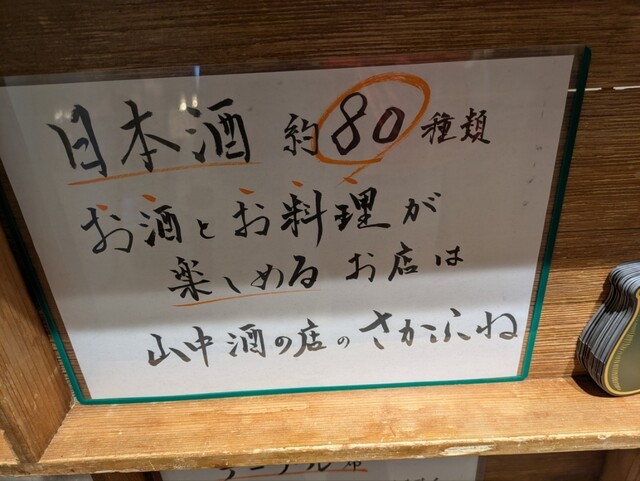 日本酒 約80種類
お酒とお料理が
楽しめるお店は
山中酒の店のさかふね